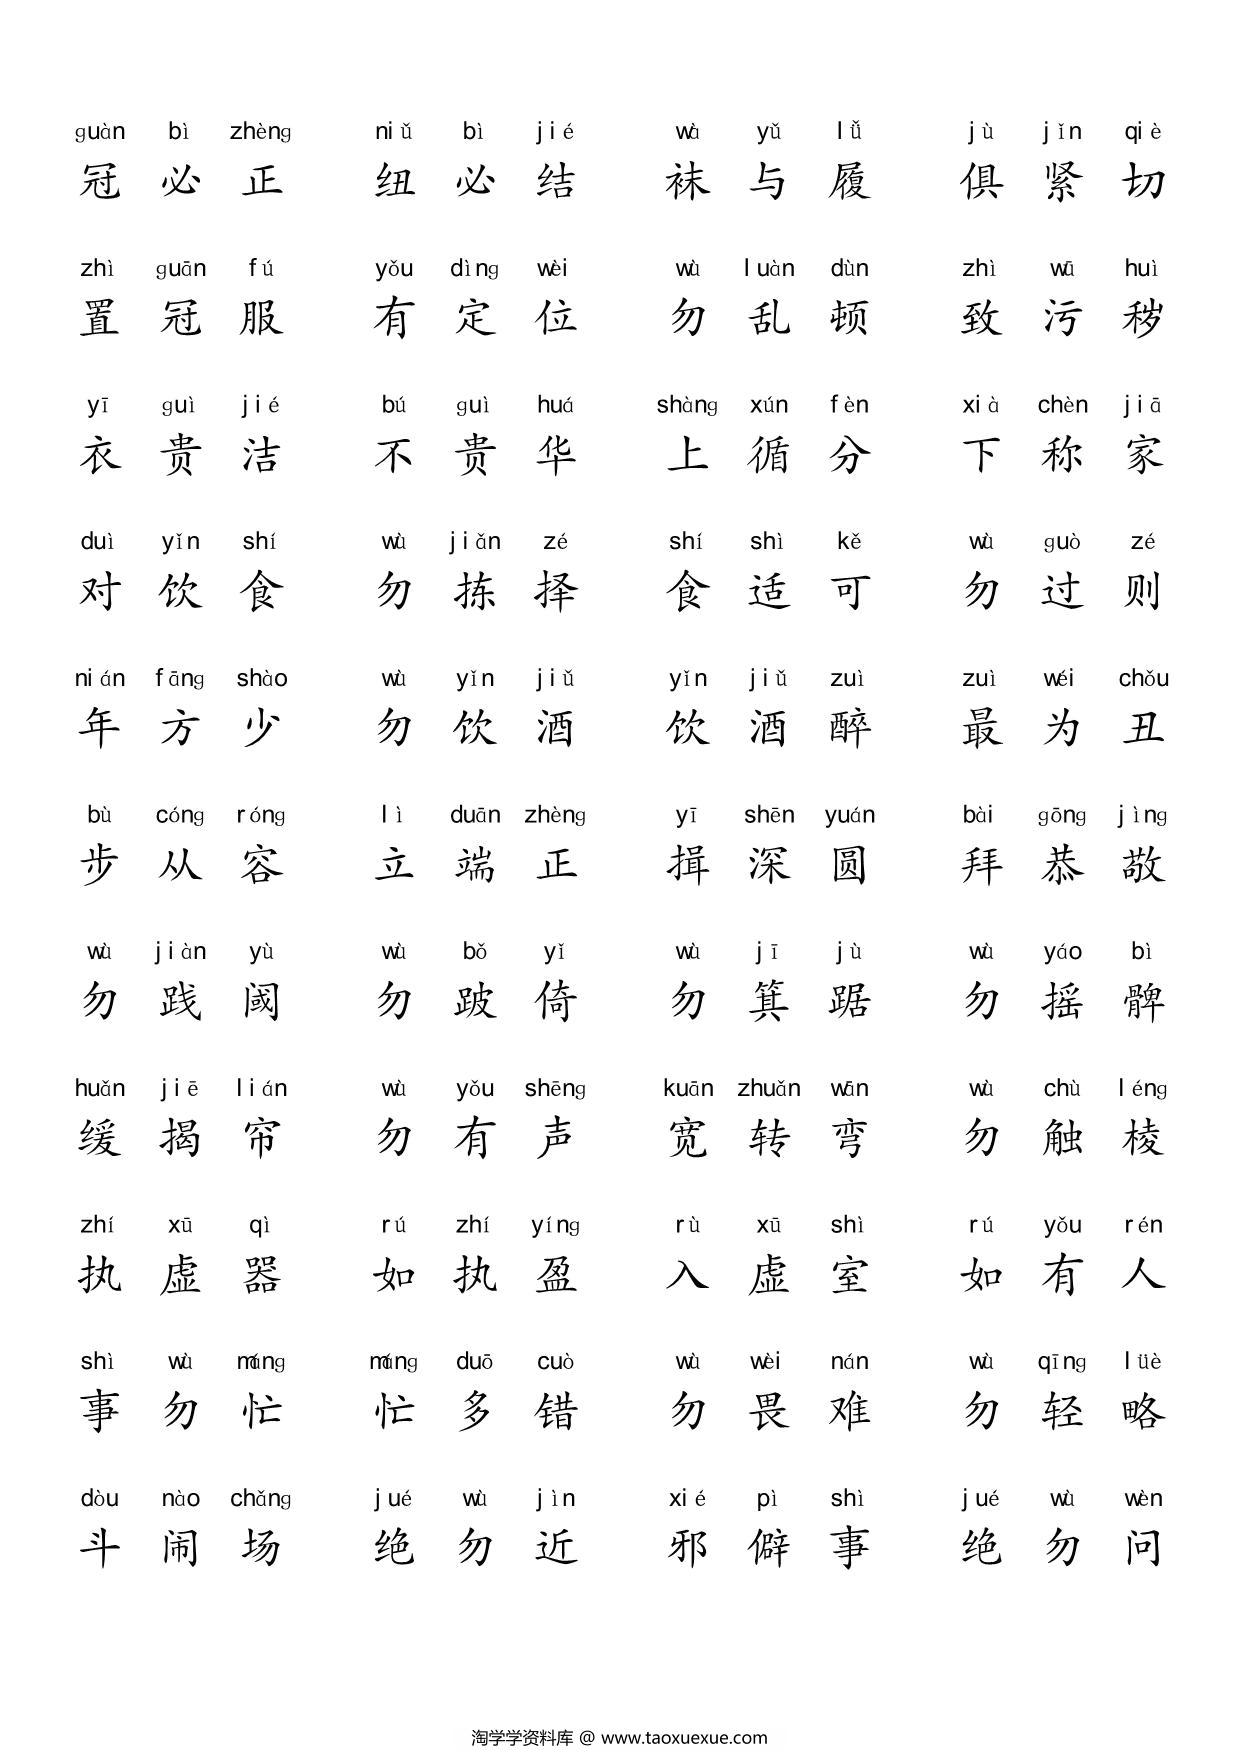 guàn bì zhèng niǔ bì jié wà yǔ lǚ jù jǐn qiè
冠 必 正 纽 必 结 袜 与 履 俱 紧 切
zhì guān fú yǒu dìng wèi wù luàn dùn zhì wū huì
置 冠 服 有 定 位 勿 乱 顿 致 污 秽
yī guì jié bú guì huá shàng xún fèn xià chèn jiā
衣 贵 洁 不 贵 华 上 循 分 下 称 家
duì yǐn shí wù jiǎn zé shí shì kě wù guò zé
对 饮 食 勿 拣 择 食 适 可 勿 过 则
nián fāng shào wù yǐn jiǔ yǐn jiǔ zuì zuì wéi chǒu
年 方 少 勿 饮 酒 饮 酒 醉 最 为 丑
bù cóng róng lì duān zhèng yī shēn yuán bài gōng jìng
步 从 容 立 端 正 揖 深 圆 拜 恭 敬
wù jiàn yù wù bǒ yǐ wù jī jù wù yáo bì
勿 践 阈 勿 跛 倚 勿 箕 踞 勿 摇 髀
huǎn jiē lián wù yǒu shēng kuān zhuǎn wān wù chù léng
缓 揭 帘 勿 有 声 宽 转 弯 勿 触 棱
zhí xū qì rú zhí yíng rù xū shì rú yǒu rén
执 虚 器 如 执 盈 入 虚 室 如 有 人
shì wù máng máng duō cuò wù wèi nán wù qīng lüè
事 勿 忙 忙 多 错 勿 畏 难 勿 轻 略
dòu nào chǎng jué wù jìn xié pì shì jué wù wèn
斗 闹 场 绝 勿 近 邪 僻 事 绝 勿 问
淘学学资料库 @ www.taoxuexue.com